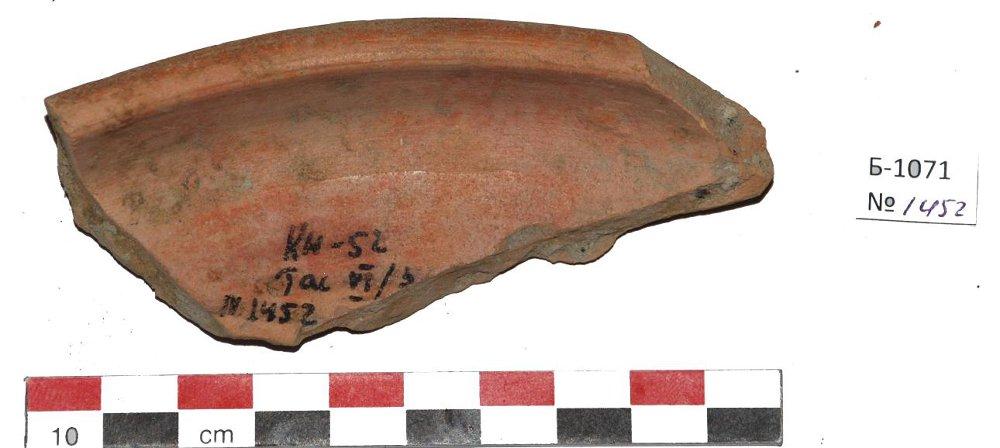 КН-52
Тас VI/3
№1452
Б-1071
№ 1452
10 cm